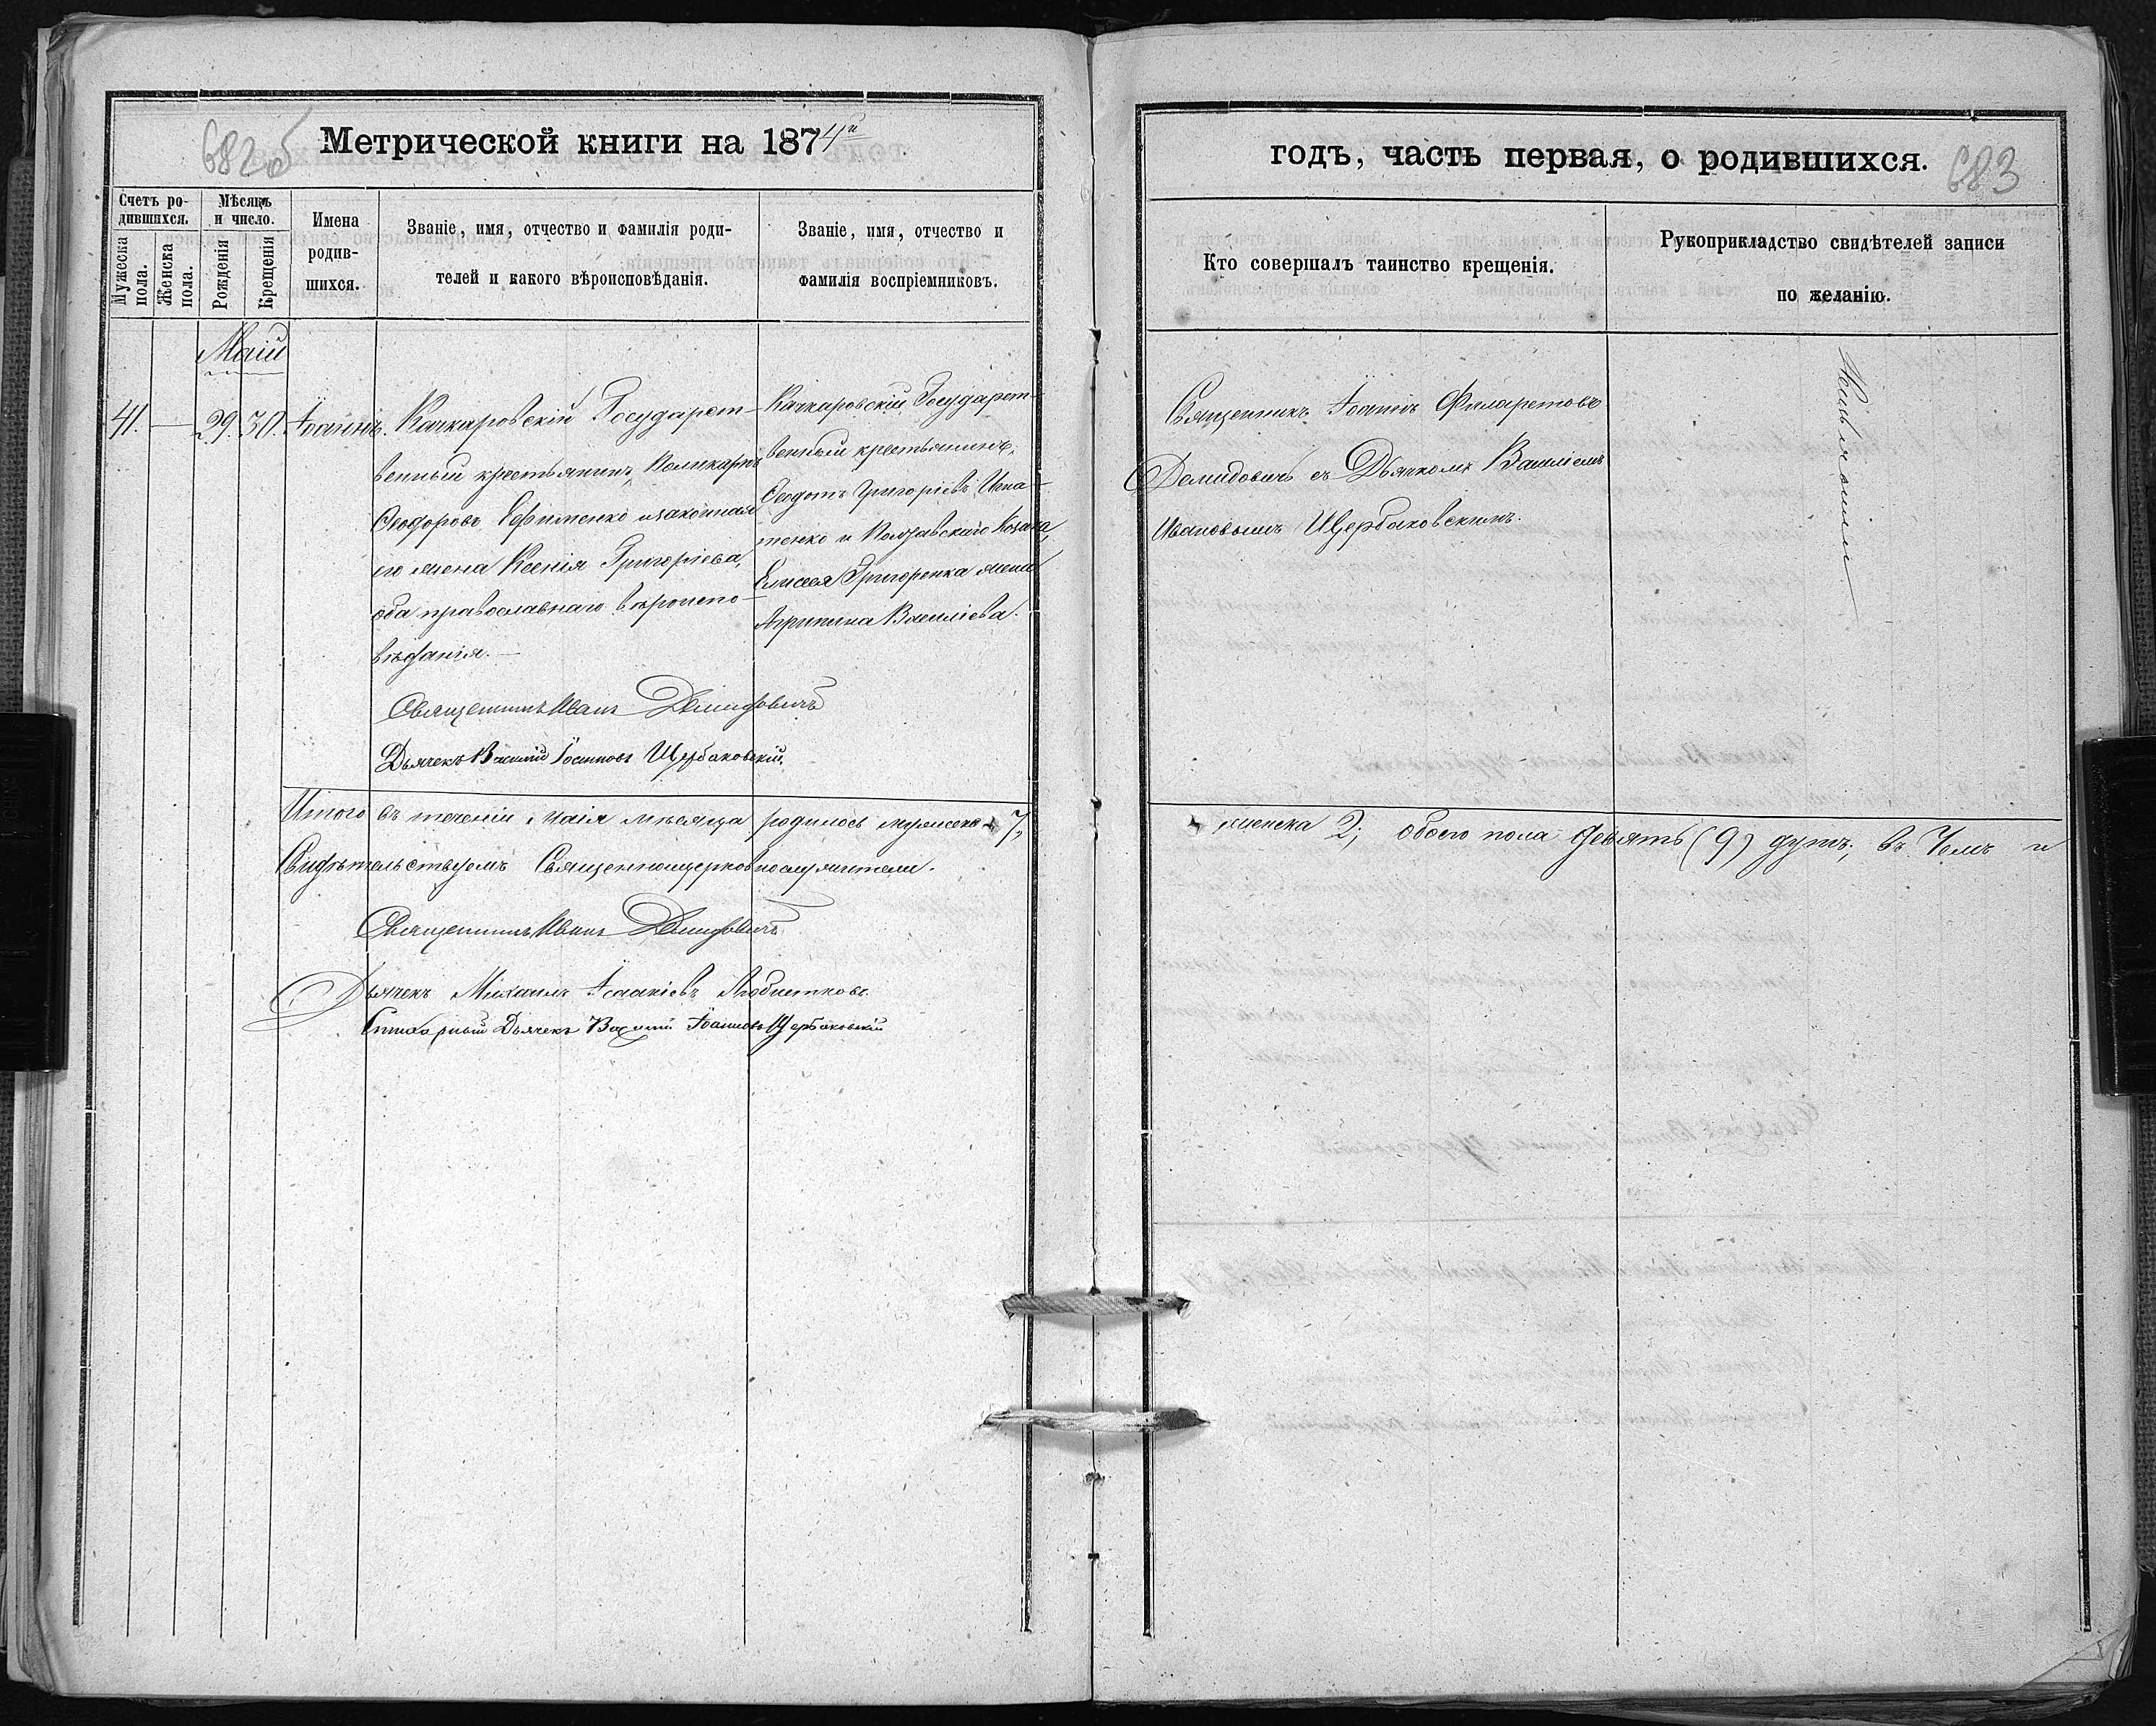 682об
Метрической книги на 1874й
Счетъ родившихся.
Мужеска пола.
Женска пола.
Мѣсяцъ и число.
Рожденія
Крещенія
Имена родив-
шихся.
Званіе, имя, отчество и фамилія роди-
телей и какого вѣроисповѣданія.
Званіе, имя, отчество и
фамилія воспріемниковъ.
Маій
41. — 29. 30. Іоаннъ.
Качкаровскій Государст-
венный крестьянинъ, Поликарпъ
Ѳеодоровъ Ефименко изаконная
его жена Ксенія Григоріева,
оба православнаго вѣроиспо-
вѣданія. —
Качкаровскій Государст-
венный крестьянинъ,
Ѳеодотъ Григоріевъ Игна-
тенко и Полтавскаго Козака,
Елисея Григоренка жена
Агрипина Василіева.
Священникъ Иванъ Демидовичъ
Дьячекъ Василій Іоанновъ Щербаковскій.
Итого въ теченіи маія мѣсяца родилось мужеска 7,
Свидѣтельствуемъ Священноцерковнослужители.
Священникъ Иванъ Демидовичъ
Дьячекъ Михаилъ Ісаакіевъ Любистковъ.
Стихарный Дьячекъ Василій Іоанновъ Щербаковскій
годъ, часть первая, о родившихся.
683
Кто совершалъ таинство крещенія.
Рукоприкладство свидѣтелей записи
по желанію.
Священникъ Іоаннъ Филаретовъ
Демидовичъ съ Дьячкомъ Василіемъ
Ивановымъ Щербаковскимъ.
женска 2; обоего пола девять (9) душъ; въ чемъ и